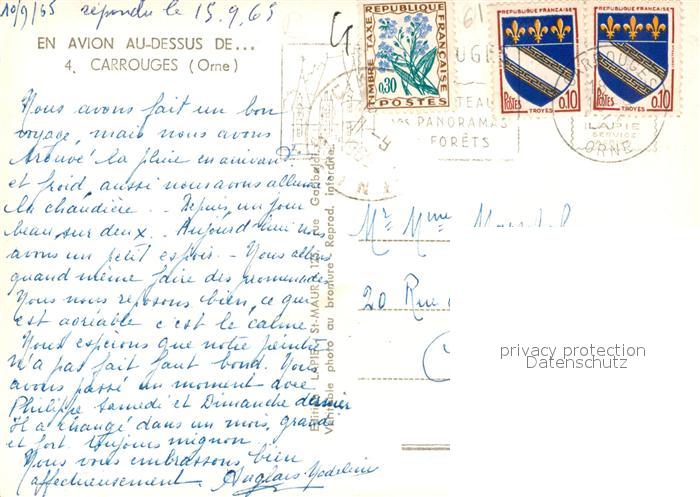 10/9/65 répondu le 15.9.65
EN AVION AU-DESSUS DE...
4. CARROUGES (Orne)
Nous avons fait un bon
voyage, mais nous avons
trouvé la pluie en arrivant
et froid, aussi nous avons allumé
la chaudière. - Depuis un jour
beau, sur deux. - Aujourd'hui nous
avons un petit espoir. - Nous allons
quand même faire des promenades
Nous nous reposons bien, ce qui
est agréable c'est le calme
Nous espérons que notre peintre
n'a pas fait faux bond. Nous
avons passé un moment avec
Philippe Samedi et Dimanche dernier
Il a changé dans un mois, grand
et fort. toujours mignon
Nous vous embrassons bien
affectueusement. Anglais Madeleine
Editions LAPIE, St-MAUR, 125, rue Garibaldi
Véritable photo au bromure Reprod. interdite.
TIMBRE TAXE
REPUBLIQUE FRANÇAISE
0,30
POSTES
61
REPUBLIQUE FRANÇAISE
POSTES
0,10
TROYES
REPUBLIQUE FRANÇAISE
POSTES
0,10
TROYES
PANORAMAS
FORÊTS
CARROUGES
ORNE
LAPIE
SERVICE
Mr Mme
20 Rue
privacy protection
Datenschutz